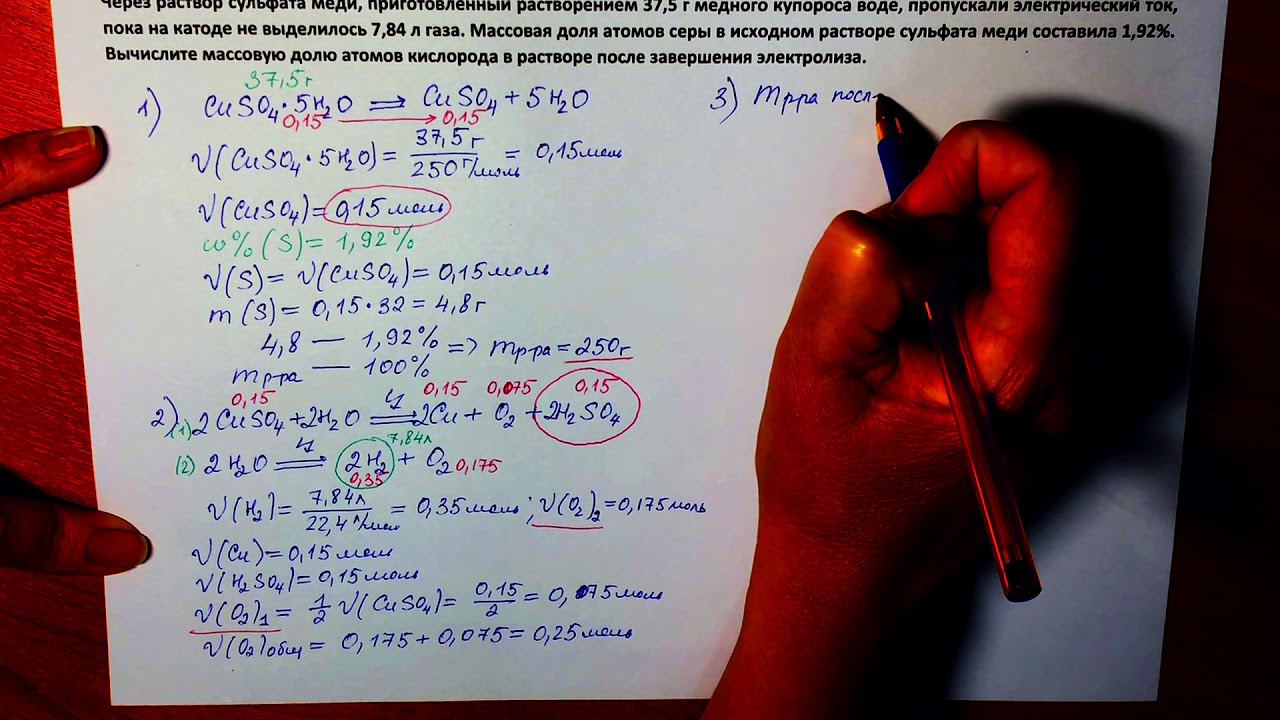 Через раствор сульфата меди, приготовленный растворением 37,5 г медного купороса воде, пропускали электрический ток,
пока на катоде не выделилось 7,84 л газа. Массовая доля атомов серы в исходном растворе сульфата меди составила 1,92%.
Вычислите массовую долю атомов кислорода в растворе после завершения электролиза.
37,5г
1) CuSO₄·5H₂O ⇒ CuSO₄ + 5H₂O
0,15 → 0,15
ν(CuSO₄·5H₂O) = 37,5г / 250г/моль = 0,15моль
ν(CuSO₄) = 0,15моль
ω%(S) = 1,92%
ν(S) = ν(CuSO₄) = 0,15моль
m(S) = 0,15·32 = 4,8г
4,8 — 1,92%
mр-ра — 100% => mр-ра = 250г
0,15 0,15 0,075 0,15
2) (1) 2CuSO₄ + 2H₂O =эл= 2Cu + O₂ + 2H₂SO₄
7,84л
(2) 2H₂O =эл=> 2H₂ + O₂ 0,175
0,35
ν(H₂) = 7,84л / 22,4л/моль = 0,35моль; ν(O₂)₂ = 0,175моль
ν(Cu) = 0,15моль
ν(H₂SO₄) = 0,15моль
ν(O₂)₁ = 1/2 ν(CuSO₄) = 0,15/2 = 0,075моль
ν(O₂)общ = 0,175 + 0,075 = 0,25моль
3) mр-ра посл